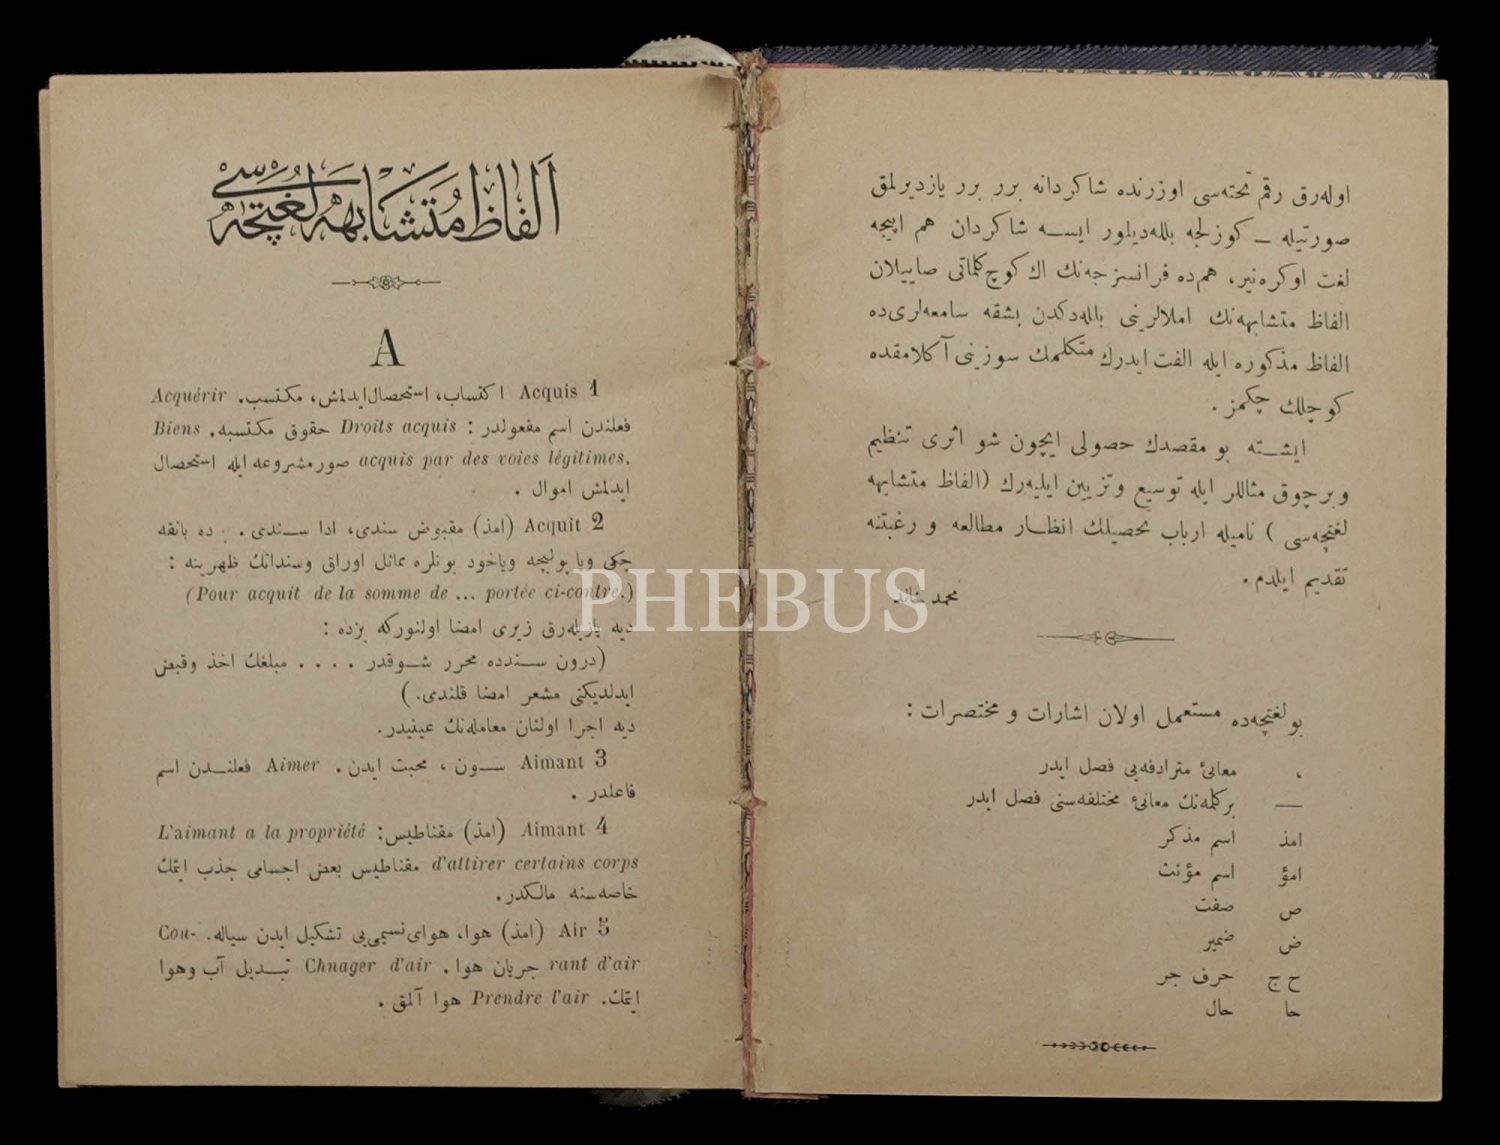 اوله‌رق رقم تخته‌سی اوزرنده شاکردانه برر برر یازدیرلمق
صورتیله — کوزلجه بلله‌دیلور ایسه شاکردان هم اپیجه
لغت اوکره‌نیر، هم‌ده فرانسزجه‌نك اك کوچ کلماتی صاییلان
الفاظ متشابهه‌نك املالرینی بلله‌دکدن بشقه سامعه‌لری‌ده
الفاظ مذکوره ایله الفت ایدرك متکلمك سوزینی آکلامقده
کوچلك چکمز .
ایشته بو مقصدك حصولی ایچون شو اثری تنظیم
وبرچوق مثاللر ایله توسیع وتزیین ایلیه‌رك (الفاظ متشابهه
لغتچه‌سی ) نامیله ارباب تحصیلك انظار مطالعه و رغبتنه
تقدیم ایلدم .
محمد خالد
بولغتچه‌ده مستعمل اولان اشارات و مختصرات :
، معانئ مترادفه‌یی فصل ایدر
— برکلمه‌نك معانئ مختلفه‌سنی فصل ایدر
امذ اسم مذکر
امؤ اسم مؤنث
ص صفت
ض ضمیر
ح ج حرف جر
حا حال
اَلفاظ مُتَشابهه لُغتچه‌سی
A
1 Acquis اکتساب، استحصال ایدلمش، مکتسب. Acquérir
فعلندن اسم مفعولدر : Droits acquis حقوق مکتسبه. Biens
acquis par des voies légitimes. صور مشروعه ایله استحصال
ایدلمش اموال .
2 Acquit (امذ) مقبوض سندی، ادا سندی . ده بانقه
چکی ویا پولیچه ویاخود بونلره مماثل اوراق وسنداتك ظهرینه :
(Pour acquit de la somme de ... portée ci-contre.)
دیه یازیله‌رق زیری امضا اولنورکه بزده :
(درون سندده محرر شوقدر . . . . مبلغك اخذ وقبض
ایدلدیکنی مشعر امضا قلندی.)
دیه اجرا اولنان معامله‌نك عینیدر.
3 Aimant سون ، محبت ایدن . Aimer فعلندن اسم
فاعلدر .
4 Aimant (امذ) مقناطیس: L'aimant a la propriété
d'attirer certains corps مقناطیس بعض اجسامی جذب ایتمك
خاصه‌سنه مالکدر.
5 Air (امذ) هوا، هوای نسیمی‌یی تشکیل ایدن سیاله. Cou-
rant d'air جریان هوا . Chnager d'air تبدیل آب وهوا
ایتمك. Prendre l'air هوا آلمق .
PHEBUS